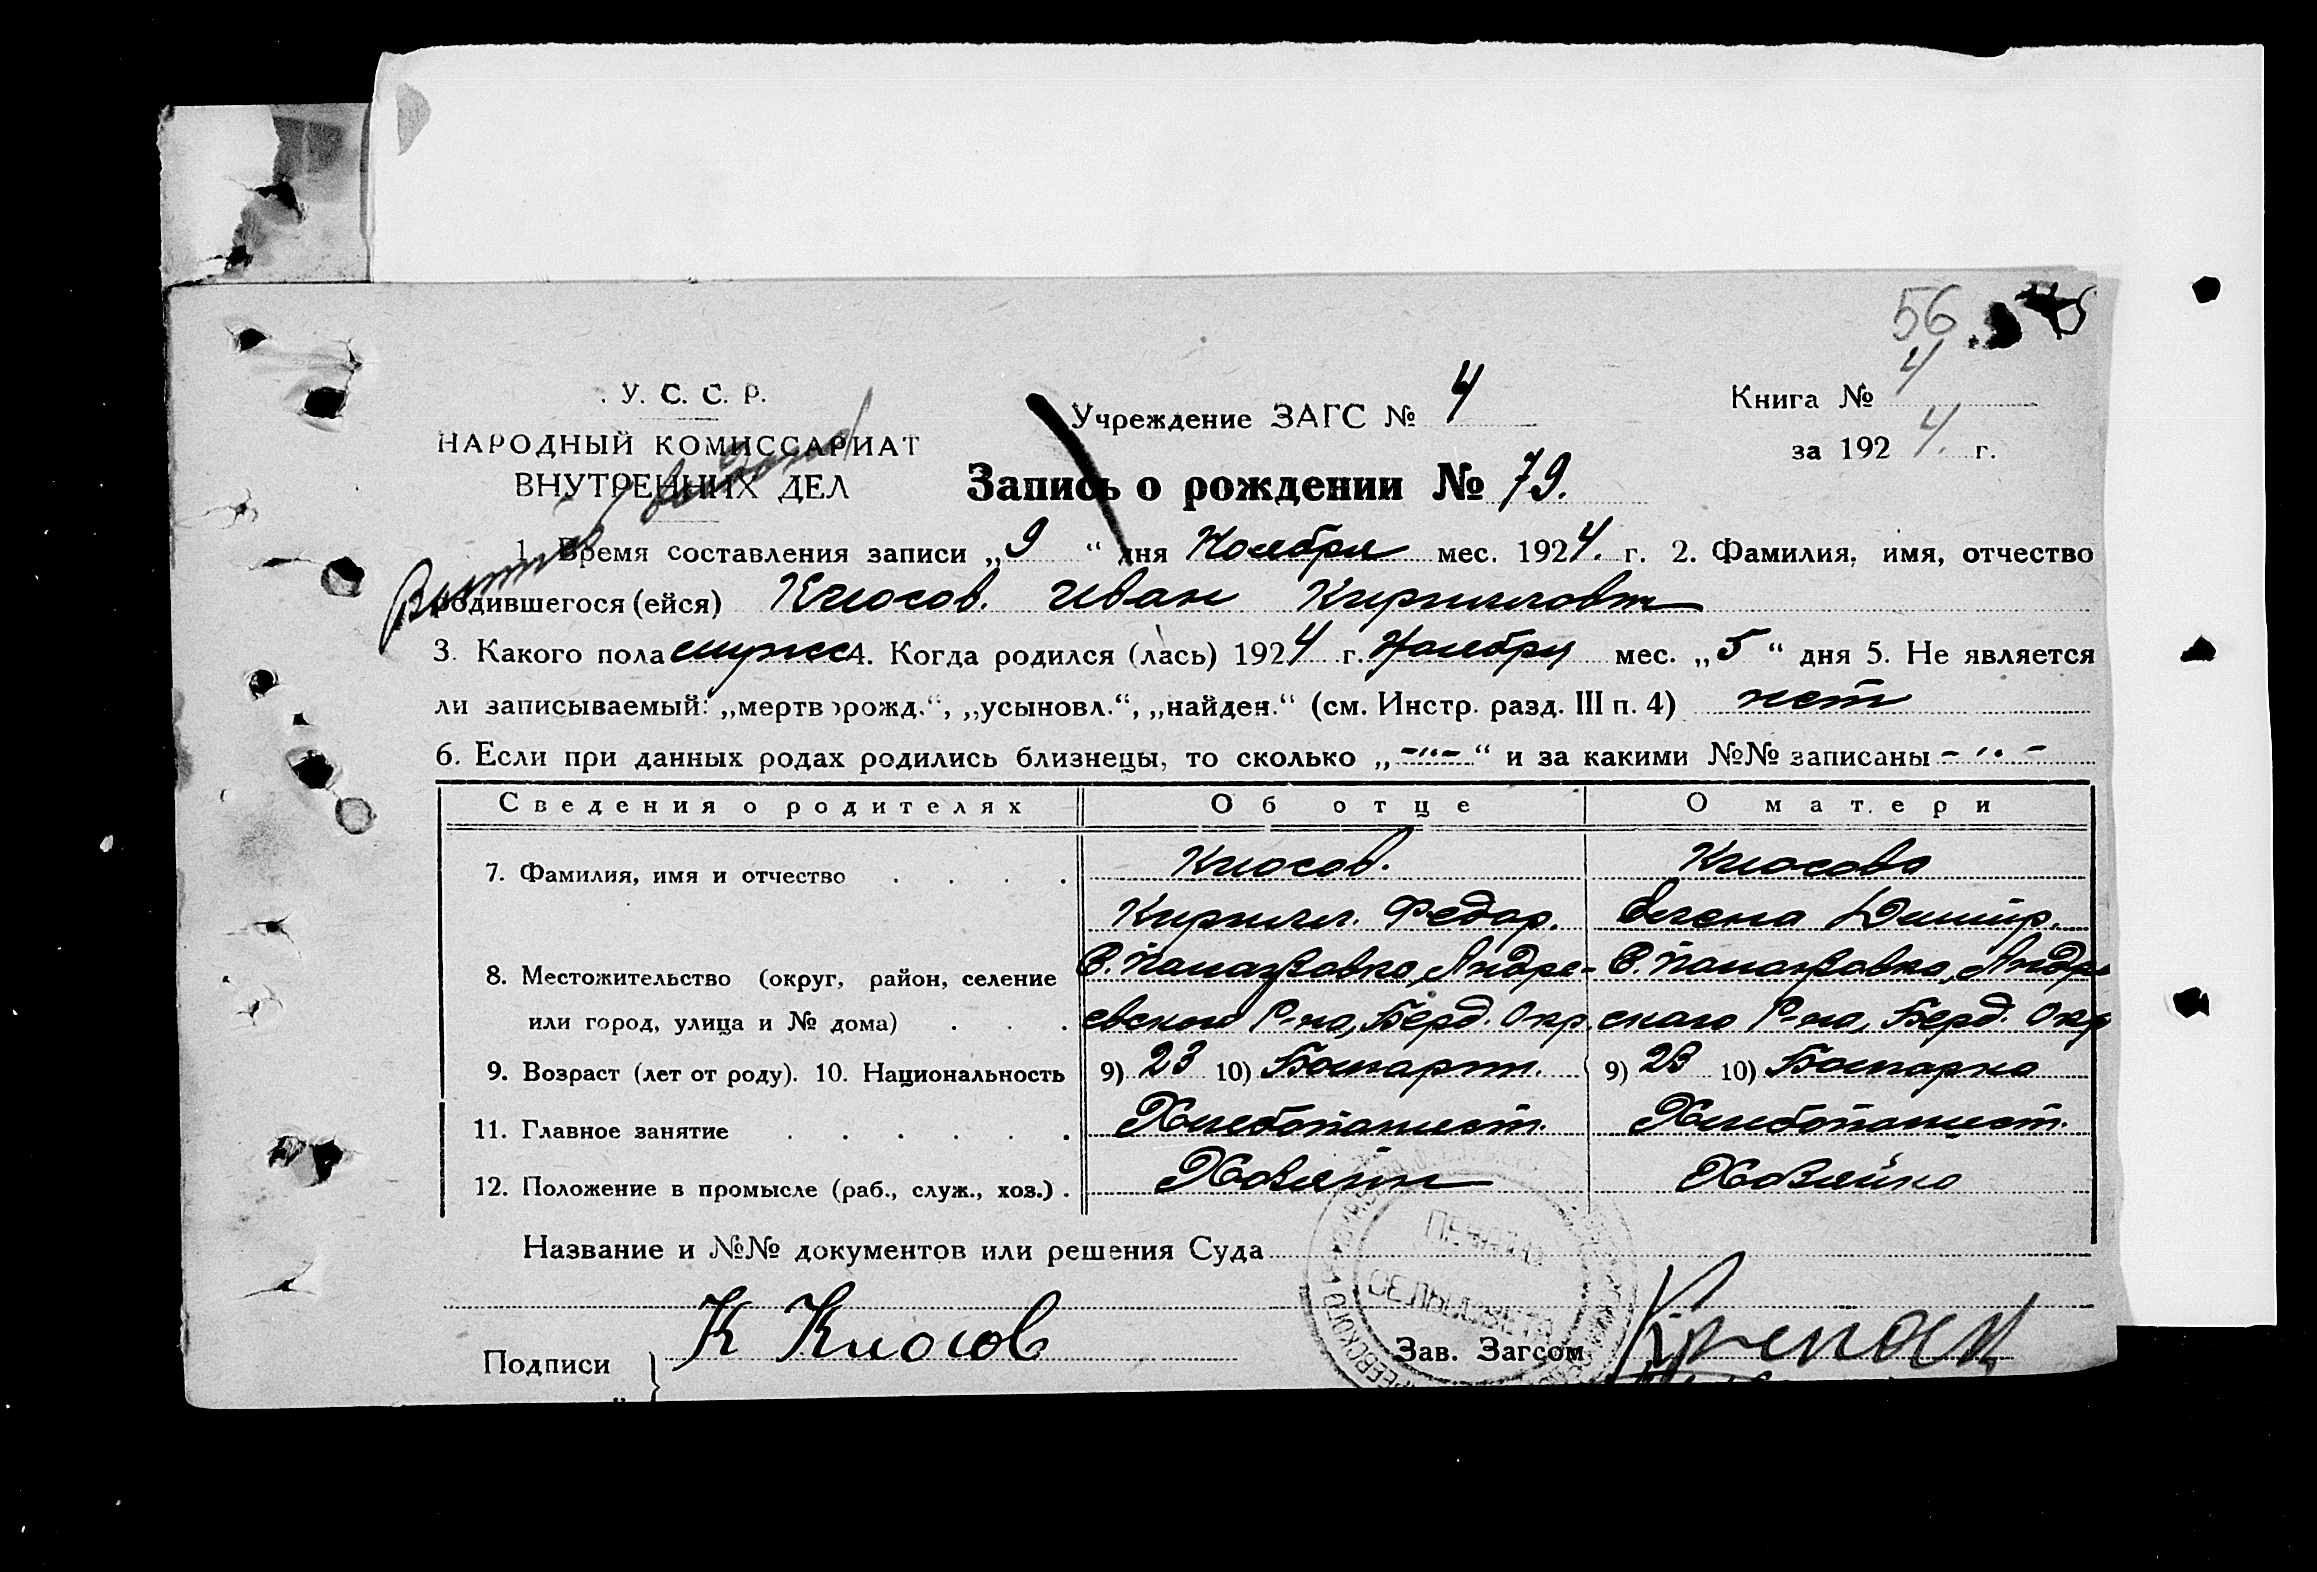 56
У. С. С. Р.
НАРОДНЫЙ КОМИССАРИАТ
ВНУТРЕННИХ ДЕЛ
Учреждение ЗАГС № 4
Книга № 4
за 1924 г.
Запись о рождении № 79.
1. Время составления записи „9“ дня Ноября мес. 1924. г. 2. Фамилия, имя, отчество
родившегося (ейся) Клюсов. Иван Кириллович
3. Какого пола мужск 4. Когда родился (лась) 1924 г. Ноября мес. „5“ дня 5. Не является
ли записываемый: „мертворожд.“, „усыновл.“, „найден.“ (см. Инстр. разд. III п. 4) нет
6. Если при данных родах родились близнецы, то сколько „-"-“ и за какими №№ записаны -"-
Сведения о родителях Об отце О матери
7. Фамилия, имя и отчество Клюсов. Клюсова
Кирилл. Федор. Елена Димитр.
8. Местожительство (округ, район, селение С. Андре- С. Андре
или город, улица и № дома) евского Р-на, Берд. Окр. ского Р-на, Берд. Окр
9. Возраст (лет от роду). 10. Национальность 9) 23 10) Болгарин. 9) 23 10) Болгарка
11. Главное занятие Хлебопашест. Хлебопашест.
12. Положение в промысле (раб., служ., хоз.) Хозяин Хозяйка
Название и №№ документов или решения Суда
ПЕЧАТЬ
СЕЛЬСОВЕТА
Подписи К Клюсов Зав. Загсом